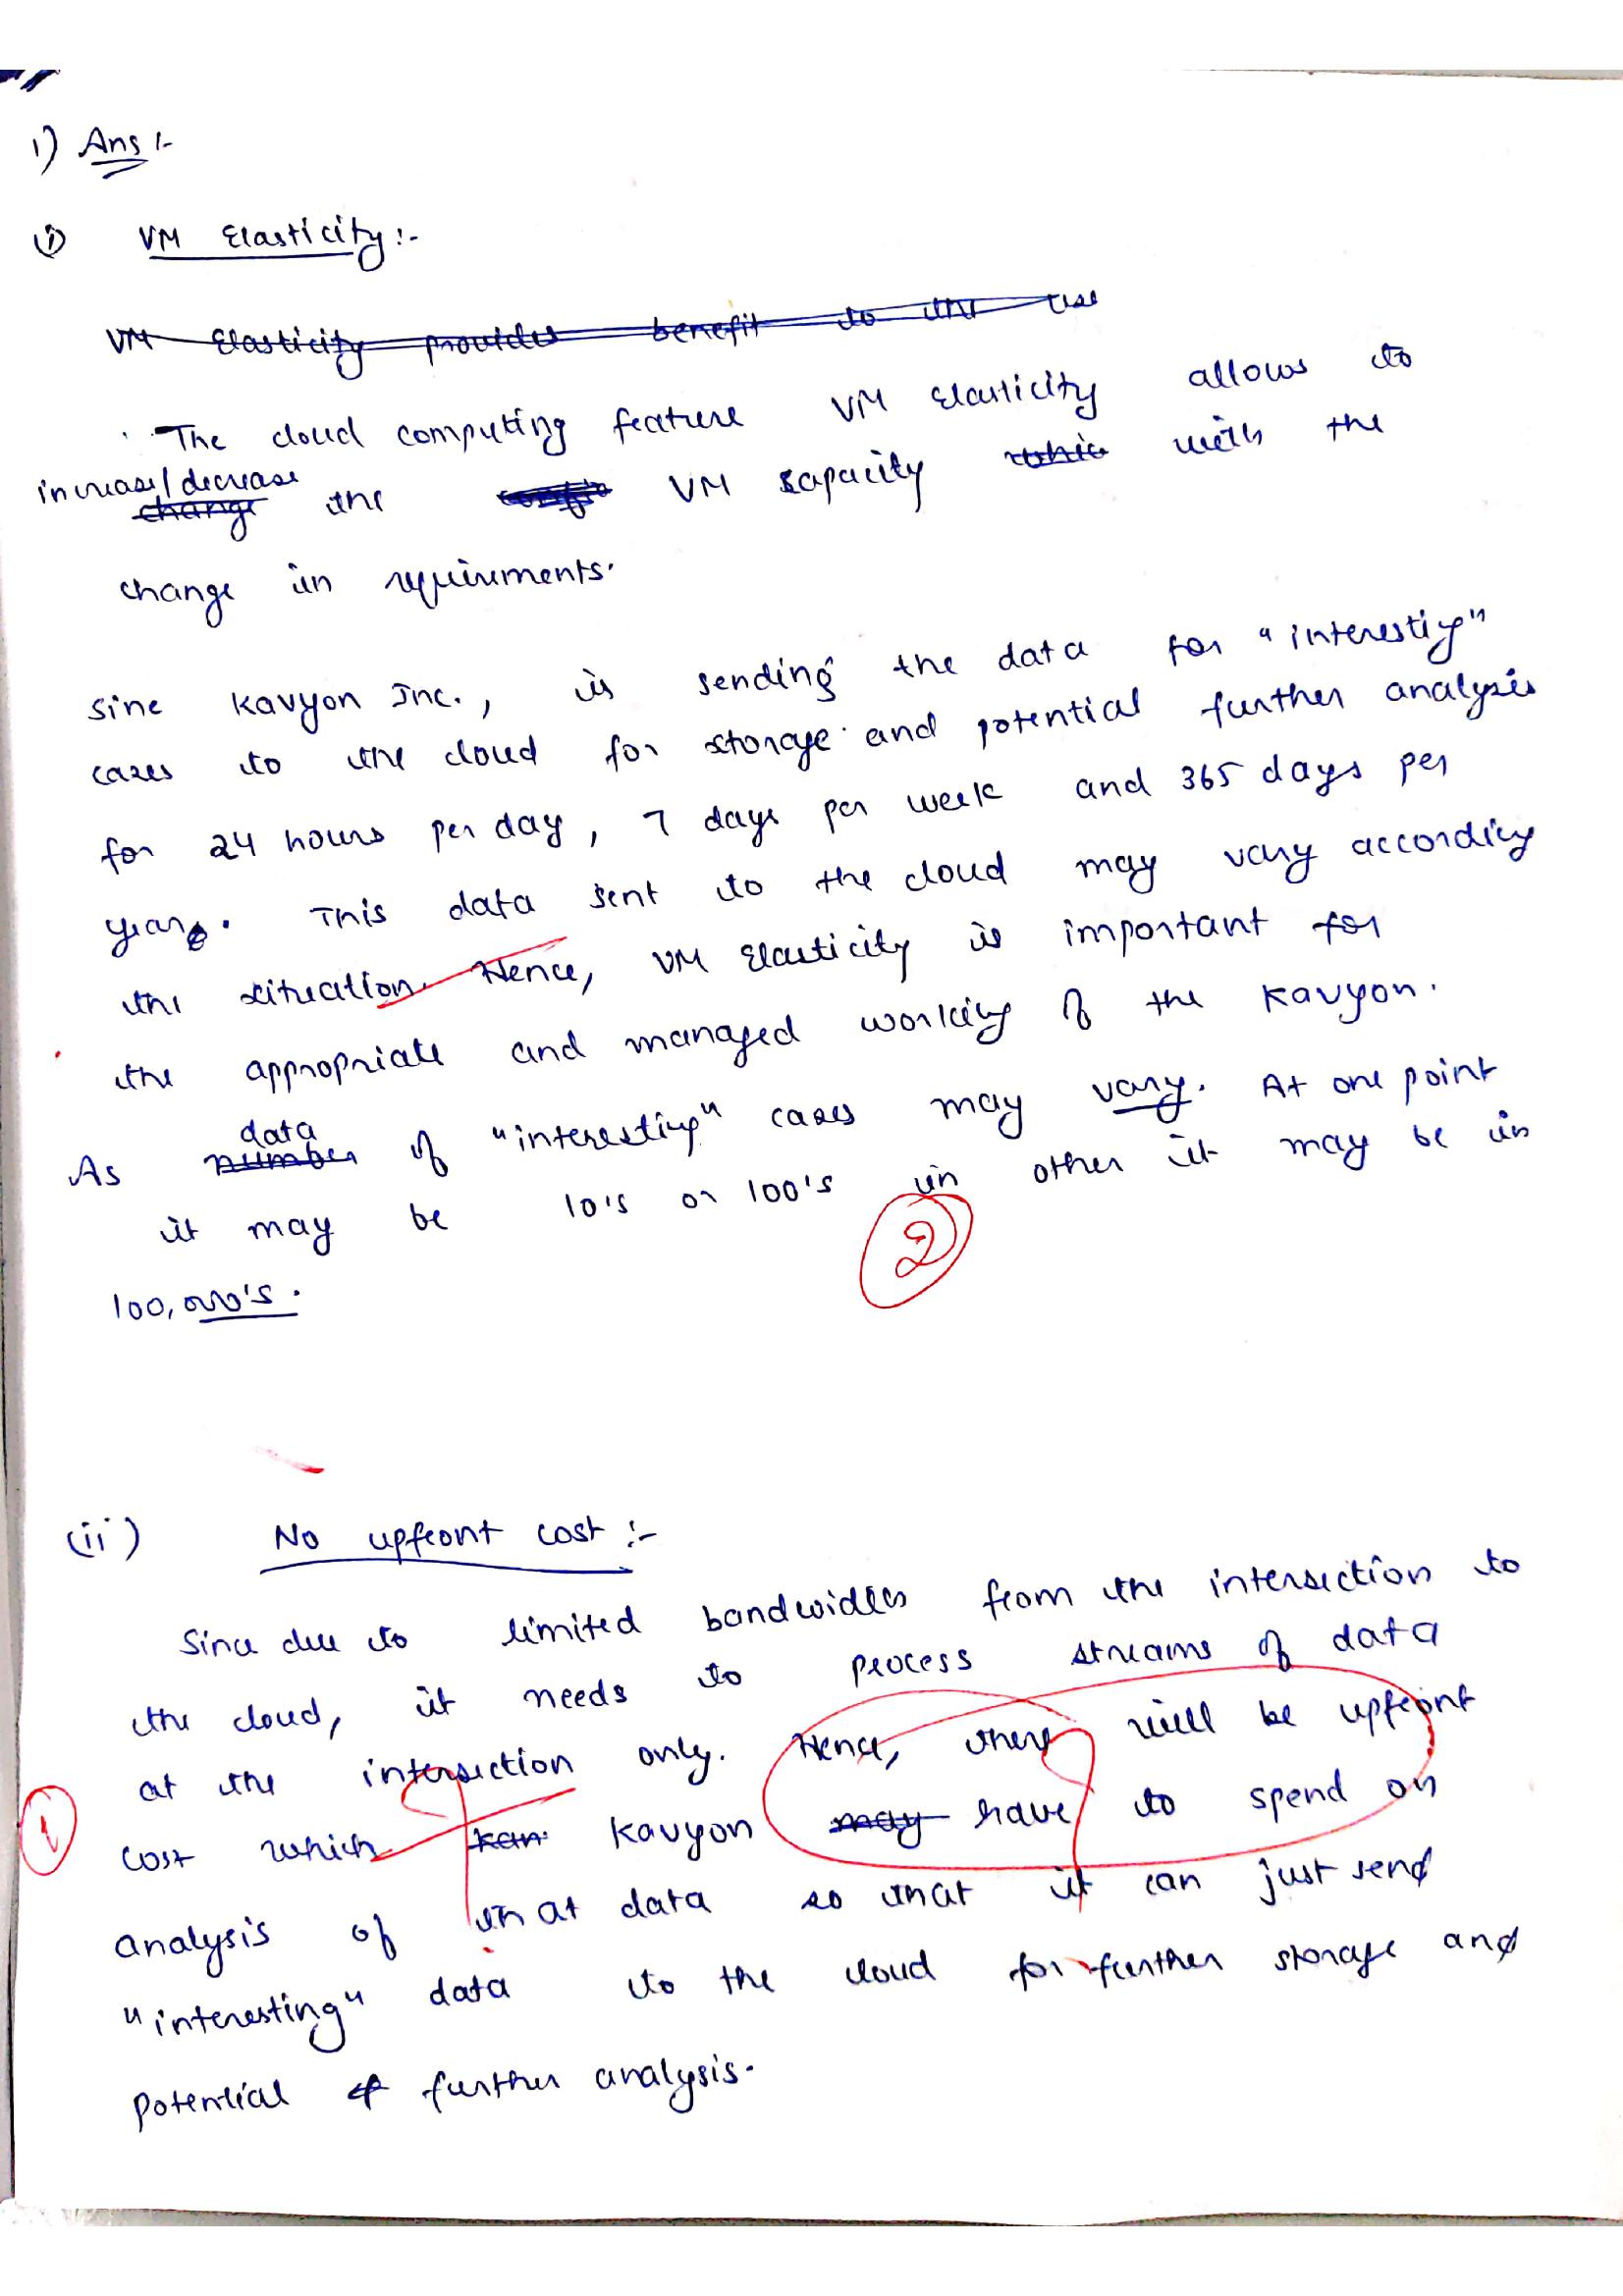 1) Ans :-
(i) VM Elasticity :-
VM Elasticity provides benefit to the use
The cloud computing feature VM Elasticity allows to
increase/decrease
change the VM capacity whic with the
change in requirements.
Sine Kavyon Inc., is sending the data for "interesting"
cases to the cloud for storage and potential further analysis
for 24 hours per day, 7 days per week and 365 days per
year. This data sent to the cloud may vary according
the situation. Hence, VM Elasticity is important for
the appropriate and managed working of the Kavyon.
data
As number of "interesting" cases may vary. At one point
it may be 10's or 100's in other it may be in
2
100,000's.
(ii) No upfront cost :-
Since due to limited bandwidth from the intersection to
the cloud, it needs to process streams of data
at the intersection only. Hence, there will be upfront
1
cost which kan Kavyon may have to spend on
analysis of that data so that it can just send
"interesting" data to the cloud for further storage and
potential & further analysis.